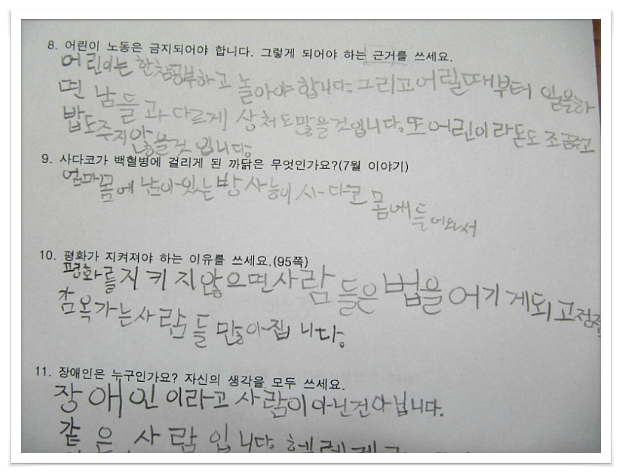 8. 어린이 노동은 금지되어야 합니다. 그렇게 되어야 하는 근거를 쓰세요.
어린이는 한참공부하고 놀아야합니다. 그리고어릴때부터 일을하
면 남들과 다르게 상처도많을것입니다. 또 어린이라돈도 조금주고
밥도주지않을것 입니다.
9. 사다코가 백혈병에 걸리게 된 까닭은 무엇인가요?(7월 이야기)
엄마몸에 남아있는방사능이사다코 몸에들어와서
10. 평화가 지켜져야 하는 이유를 쓰세요.(95쪽)
평화를지키지않으면사람들은법을어기게되고점점
감옥가는사람들 많아집니다.
11. 장애인은 누구인가요? 자신의 생각을 모두 쓰세요.
장애인이라고 사람이아닌건아닙니다.
같은사람입니다.